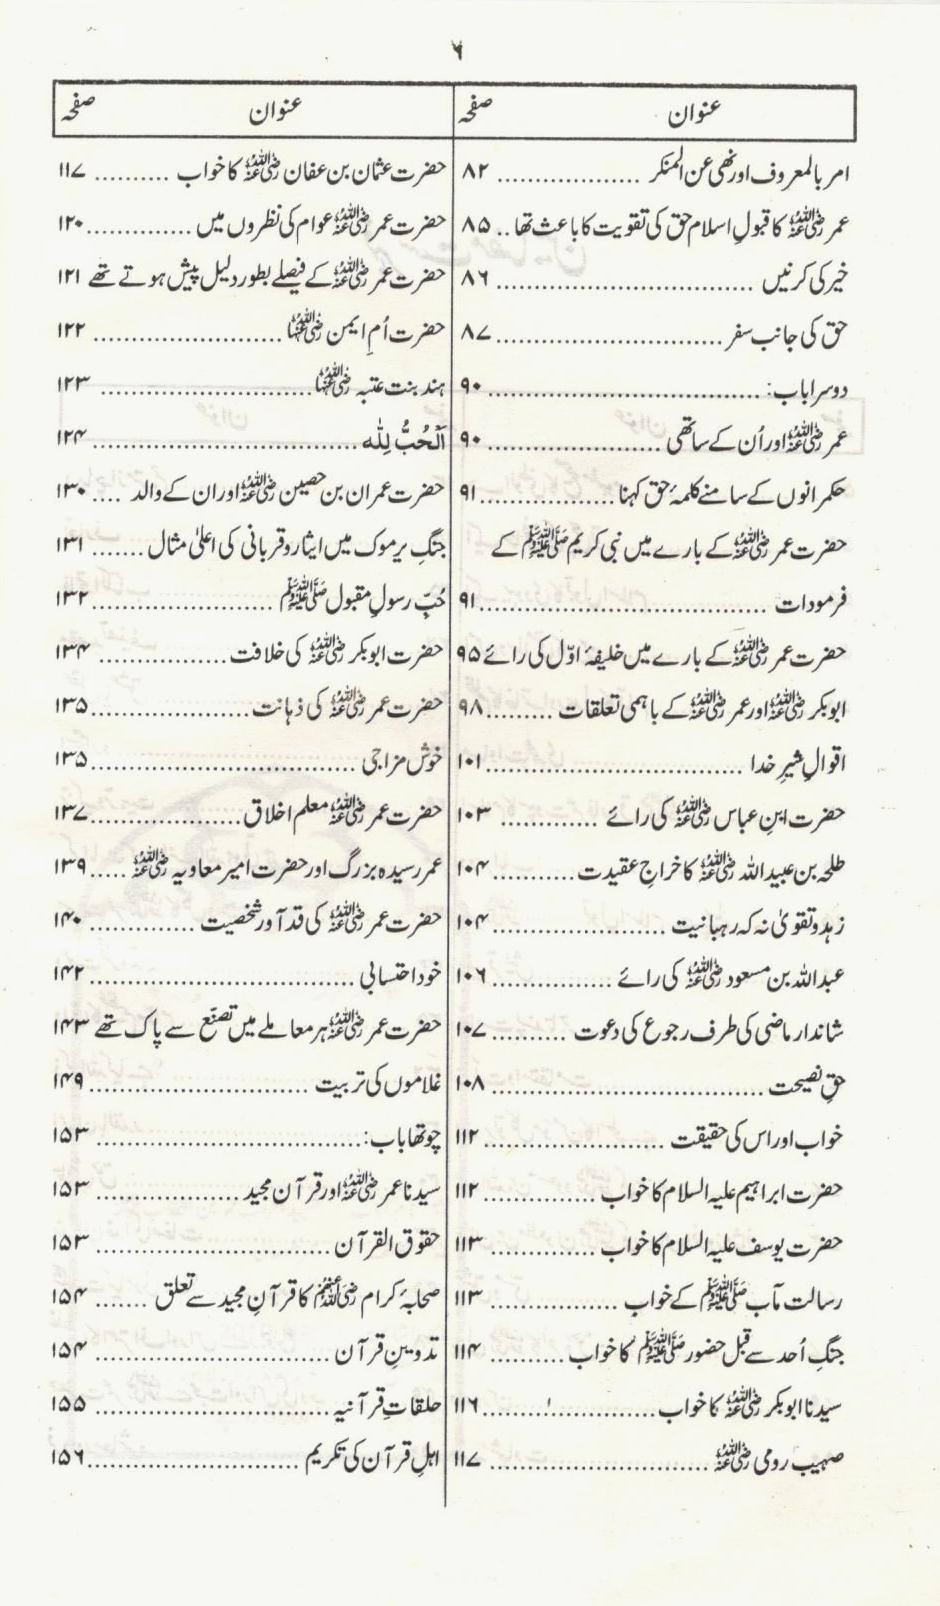 ۶
عنوان صفحہ
امر بالمعروف اور نھی عن المنکر ۸۲
عمر رضی اللہ عنہ کا قبولِ اسلام حق کی تقویت کا باعث تھا ۸۵
خیر کی کرنیں ۸۶
حق کی جانب سفر ۸۷
دوسرا باب: ۹۰
عمر رضی اللہ عنہ اور اُن کے ساتھی ۹۰
حکمرانوں کے سامنے کلمۂ حق کہنا ۹۱
حضرت عمر رضی اللہ عنہ کے بارے میں نبی کریم ﷺ کے
فرمودات ۹۱
حضرت عمر رضی اللہ عنہ کے بارے میں خلیفۂ اوّل کی رائے ۹۵
ابوبکر رضی اللہ عنہ اور عمر رضی اللہ عنہ کے باہمی تعلقات ۹۸
اقوالِ شیرِ خدا ۱۰۱
حضرت ابنِ عباس رضی اللہ عنہ کی رائے ۱۰۳
طلحہ بن عبید اللہ رضی اللہ عنہ کا خراجِ عقیدت ۱۰۴
زہد و تقویٰ نہ کہ رہبانیت ۱۰۴
عبداللہ بن مسعود رضی اللہ عنہ کی رائے ۱۰۶
شاندار ماضی کی طرف رجوع کی دعوت ۱۰۷
حقِ نصیحت ۱۰۸
خواب اور اس کی حقیقت ۱۱۲
حضرت ابراہیم علیہ السلام کا خواب ۱۱۲
حضرت یوسف علیہ السلام کا خواب ۱۱۳
رسالت مآب ﷺ کے خواب ۱۱۳
جنگِ اُحد سے قبل حضور ﷺ کا خواب ۱۱۴
سیدنا ابوبکر رضی اللہ عنہ کا خواب ۱۱۶
صہیب رومی رضی اللہ عنہ ۱۱۷
عنوان صفحہ
حضرت عثمان بن عفان رضی اللہ عنہ کا خواب ۱۱۷
حضرت عمر رضی اللہ عنہ عوام کی نظروں میں ۱۲۰
حضرت عمر رضی اللہ عنہ کے فیصلے بطور دلیل پیش ہوتے تھے ۱۲۱
حضرت اُمِ ایمن رضی اللہ عنہا ۱۲۲
ہند بنت عتبہ رضی اللہ عنہا ۱۲۳
اَلْحُبُّ لِلّٰه ۱۲۴
حضرت عمران بن حصین رضی اللہ عنہ اور ان کے والد ۱۳۰
جنگِ یرموک میں ایثار و قربانی کی اعلیٰ مثال ۱۳۱
حُبِّ رسولِ مقبول ﷺ ۱۳۲
حضرت ابوبکر رضی اللہ عنہ کی خلافت ۱۳۴
حضرت عمر رضی اللہ عنہ کی ذہانت ۱۳۵
خوش مزاجی ۱۳۵
حضرت عمر رضی اللہ عنہ معلم اخلاق ۱۳۷
عمر رسیدہ بزرگ اور حضرت امیر معاویہ رضی اللہ عنہ ۱۳۹
حضرت عمر رضی اللہ عنہ کی قد آور شخصیت ۱۴۰
خود احتسابی ۱۴۲
حضرت عمر رضی اللہ عنہ ہر معاملے میں تصنّع سے پاک تھے ۱۴۳
غلاموں کی تربیت ۱۴۹
چوتھا باب: ۱۵۳
سیدنا عمر رضی اللہ عنہ اور قرآن مجید ۱۵۳
حقوق القرآن ۱۵۳
صحابۂ کرام رضی اللہ عنہم کا قرآنِ مجید سے تعلق ۱۵۴
تدوینِ قرآن ۱۵۴
حلقاتِ قرآنیہ ۱۵۵
اہلِ قرآن کی تکریم ۱۵۶